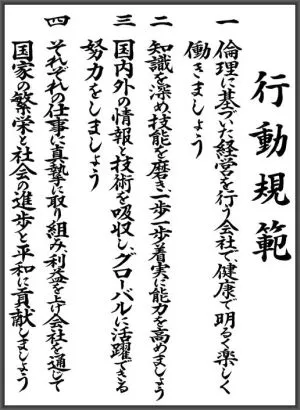 行動規範
一 倫理に基づいた経営を行う会社で、健康で明るく楽しく
働きましょう
二 知識を深め技能を磨き、一歩一歩着実に能力を高めましょう
三 国内外の情報と技術を吸収し、グローバルに活躍できる
努力をしましょう
四 それぞれの仕事に真摯に取り組み、利益を上げ会社を通じて
国家の繁栄と社会の進歩と平和に貢献しましょう